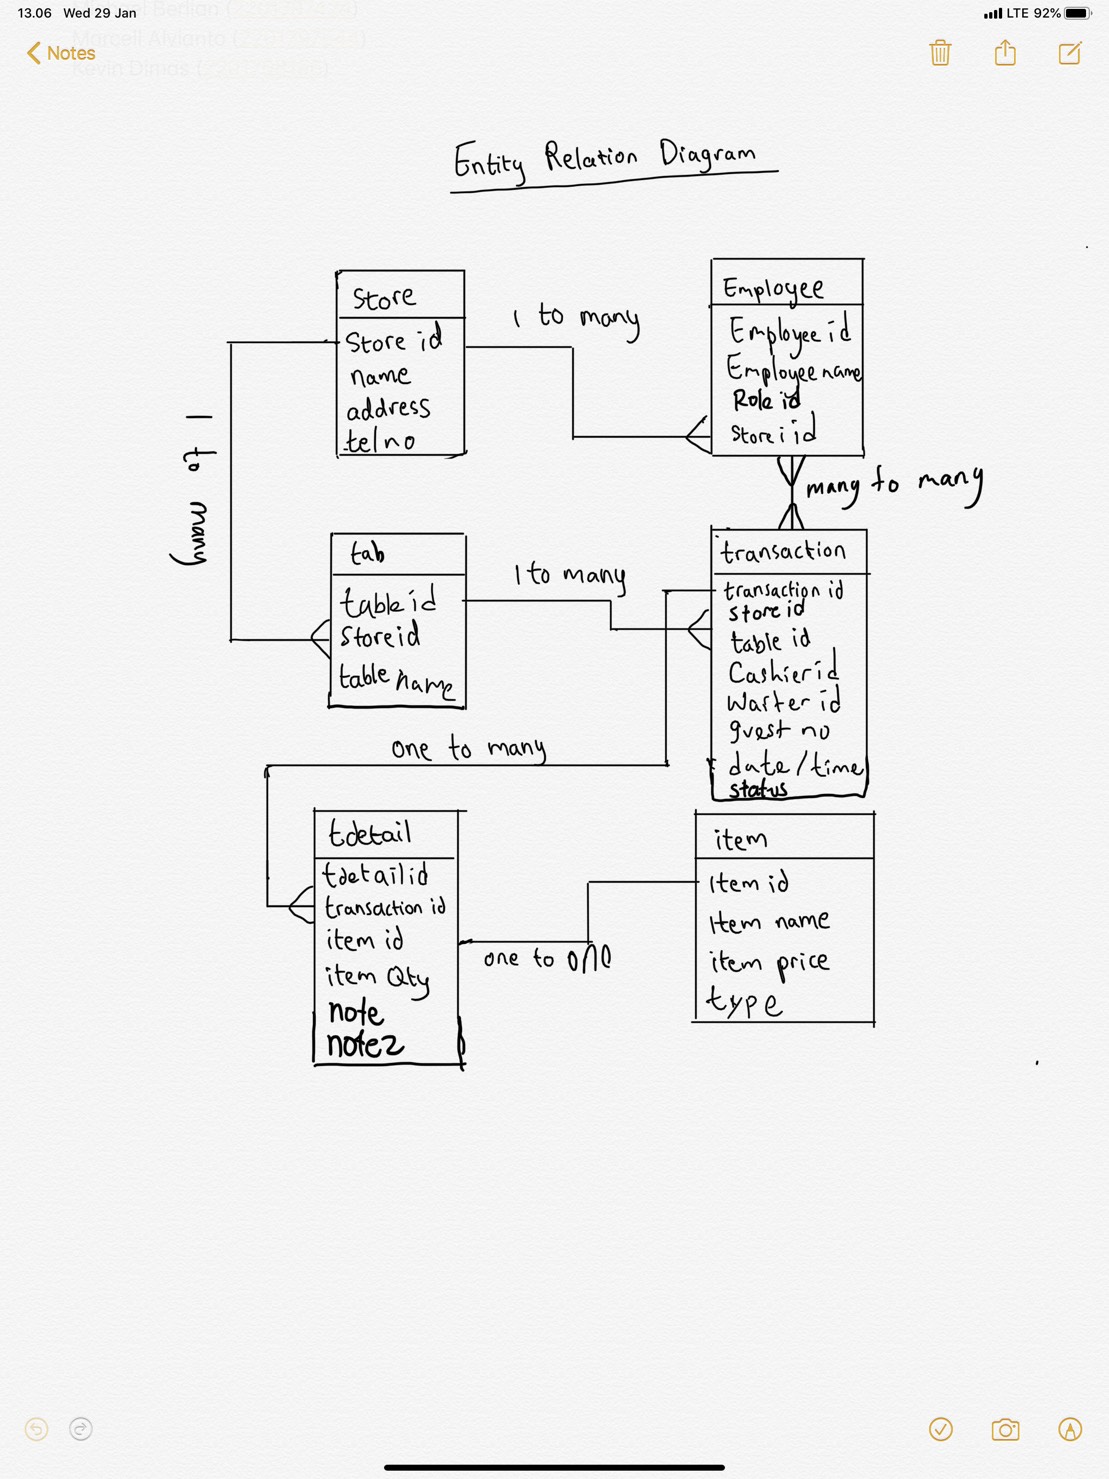 13.06 Wed 29 Jan
LTE 92%
Notes
Kevin Dimas
Entity Relation Diagram
Store
Store id
name
address
telno
1 to many
Employee
Employee id
Employee name
Role id
Store i id
1 to many
many to many
tab
table id
Store id
table name
1 to many
transaction
transaction id
store id
table id
Cashier id
Waiter id
guest no
date/time
status
one to many
tdetail
tdetail id
transaction id
item id
item Qty
note
note2
one to one
item
Item id
Item name
item price
type